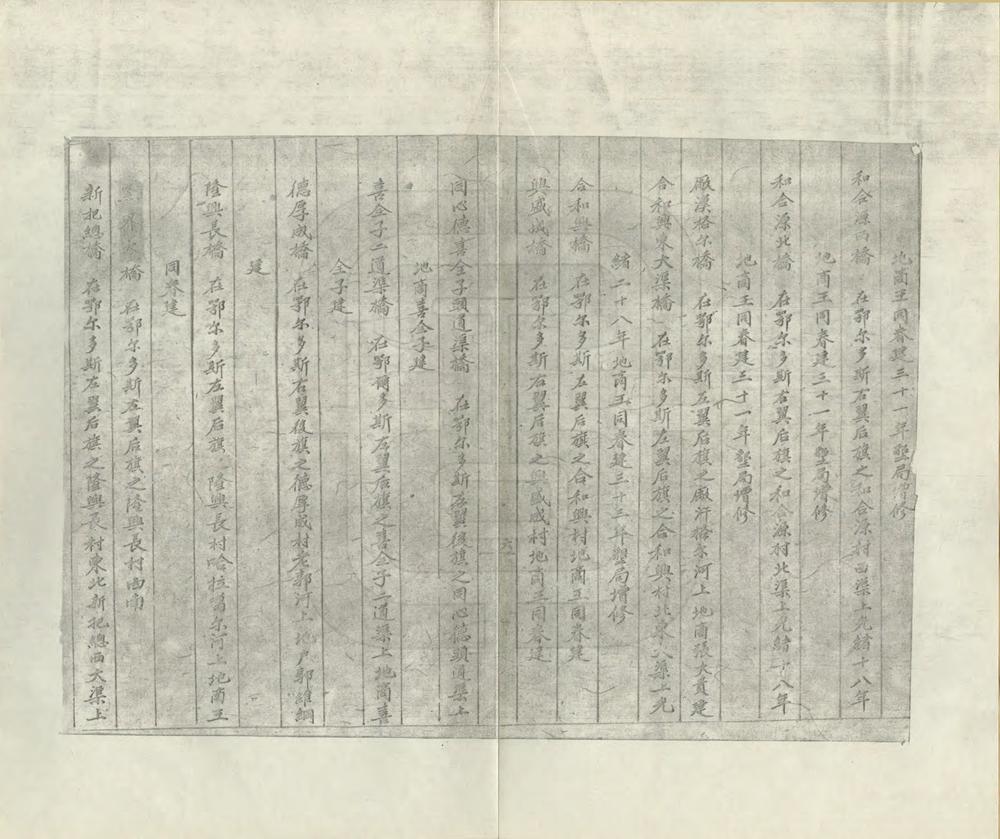 地商王同春建三十一年墾局增修
和合源西橋 在鄂尔多斯右翼后旗之和合源村西渠上光緒十八年
地商王同春建三十一年墾局增修
和合源北橋 在鄂尔多斯右翼后旗之和合源村北渠上光緒十八年
地商王同春建三十一年墾局增修
廠漢格尔橋 在鄂尔多斯左翼后旗之廠汗格尔河上地商張大貴建
合和興東大渠橋 在鄂尔多斯左翼后旗之合和興村北東大渠上光
緒二十八年地商王同春建三十三年墾局增修
合和興橋 在鄂尔多斯左翼后旗之合和興村地商王同春建
興盛成橋 在鄂尔多斯右翼后旗之興盛成村地商王同春建
六
同心德喜全子頭道渠橋 在鄂尔多斯左翼後旗之同心德頭道渠上
地商喜全子建
喜全子二道渠橋 在鄂爾多斯左翼后旗之喜全子二道渠上地商喜
全子建
德厚成橋 在鄂尔多斯右翼後旗之德厚成村老郭河上地户郭維綱
建
隆興長橋 在鄂尔多斯左翼后旗 隆興長村哈拉葛尔河上地商王
同春建
橋 在鄂尔多斯左翼后旗之隆興長村西南
新把總橋 在鄂尔多斯左翼后旗之隆興長村東北新把總西大渠上